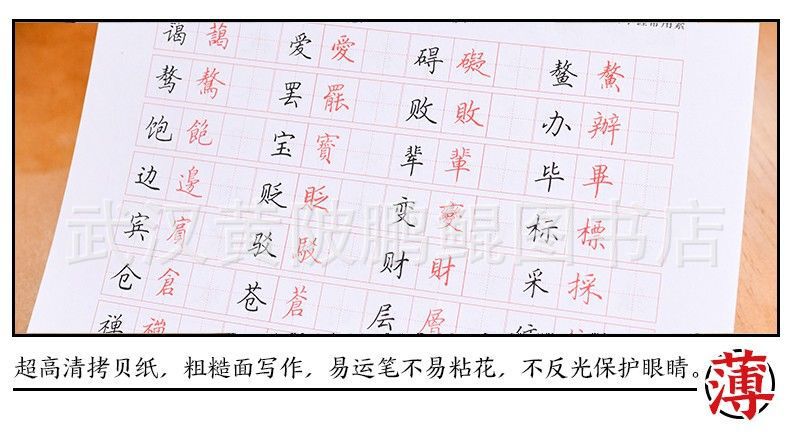 谒 謁 爱 愛 碍 礙 鳌 鰲
骜 驁 罢 罷 败 敗 办 辦
饱 飽 宝 寶 辈 輩 毕 畢
边 邊 贬 貶 变 變 标 標
宾 賓 驳 駁 财 財 采 採
仓 倉 苍 蒼 层 層
禅 禪
武汉黄陂鹏鲲图书店
超高清拷贝纸，粗糙面写作，易运笔不易粘花，不反光保护眼睛。
薄